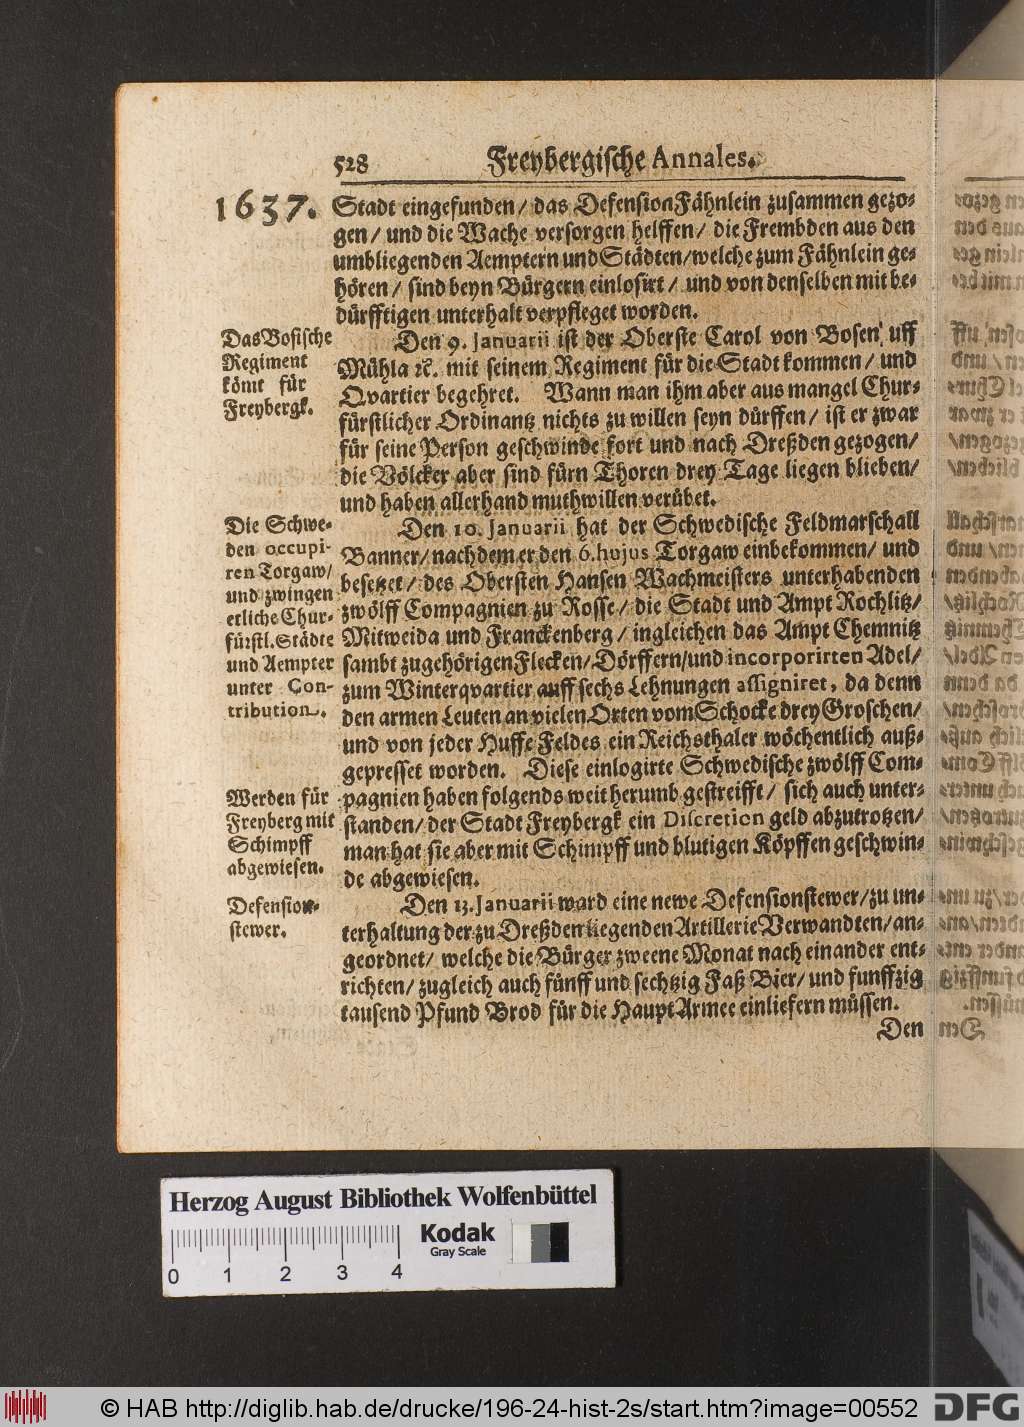 528 Freybergische Annales.
1637.
Stadt eingefunden/ das DefensionFähnlein zusammen gezo-
gen/ und die Wache versorgen helffen/ die Frembden aus den
umbliegenden Aemptern und Städten/welche zum Fähnlein ge-
hören/ sind beyn Bürgern einlosirt/ und von denselben mit be-
dürfftigen unterhalt verpfleget worden.
Das Bosische
Regiment
kömt für
Freybergk.
Den 9. Januarii ist der Oberste Carol von Bosen uff
Mühla ꝛc. mit seinem Regiment für die Stadt kommen/ und
Qvartier begehret. Wann man ihm aber aus mangel Chur-
fürstlicher Ordinantz nichts zu willen seyn dürffen/ ist er zwar
für seine Person geschwinde fort und nach Dreßden gezogen/
die Völcker aber sind fürn Thoren drey Tage liegen blieben/
und haben allerhand muthwillen verübet.
Die Schwe-
den occupi-
ren Torgaw/
und zwingen
etliche Chur-
fürstl. Städte
und Aempter
unter Con-
tribution.
Den 10. Januarii hat der Schwedische Feldmarschall
Banner/ nachdem er den 6. hujus Torgaw einbekommen/ und
besetzet/ des Obersten Hansen Wachmeisters unterhabenden
zwölff Compagnien zu Rosse/ die Stadt und Ampt Rochlitz/
Mitweida und Franckenberg/ ingleichen das Ampt Chemnitz
sambt zugehörigen Flecken/ Dörffern/und incorporirten Adel/
zum Winterqvartier auff sechs Lehnungen assigniret, da denn
den armen Leuten an vielen Orten vom Schocke drey Groschen/
und von jeder Huffe Feldes ein Reichsthaler wöchentlich auß-
gepresset worden. Diese einlogirte Schwedische zwölff Com-
pagnien haben folgends weit herumb gestreifft/ sich auch unter-
standen/ der Stadt Freybergk ein Discretion geld abzutrotzen/
man hat sie aber mit Schimpff und blutigen Köpffen geschwin-
de abgewiesen.
Werden für
Freyberg mit
Schimpff
abgewiesen.
Defension-
stewer.
Den 13. Januarii ward eine newe Defensionstewer/zu un-
terhaltung der zu Dreßden liegenden Artillerie Verwandten/ an-
geordnet/ welche die Bürger zweene Monat nach einander ent-
richten/ zugleich auch fünff und sechtzig Faß Bier/ und funffzig
tausend Pfund Brod für die Haupt Armee einliefern müssen.
Den
Herzog August Bibliothek Wolfenbüttel
Kodak
Gray Scale
0 1 2 3 4
© HAB http://diglib.hab.de/drucke/196-24-hist-2s/start.htm?image=00552
DFG